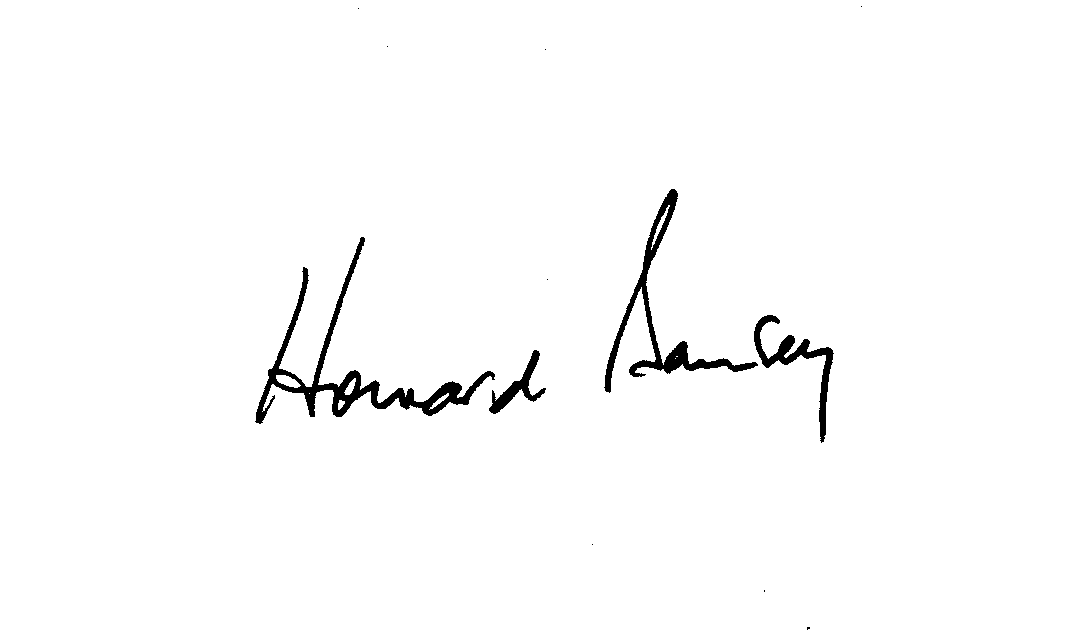 Howard Ramsey